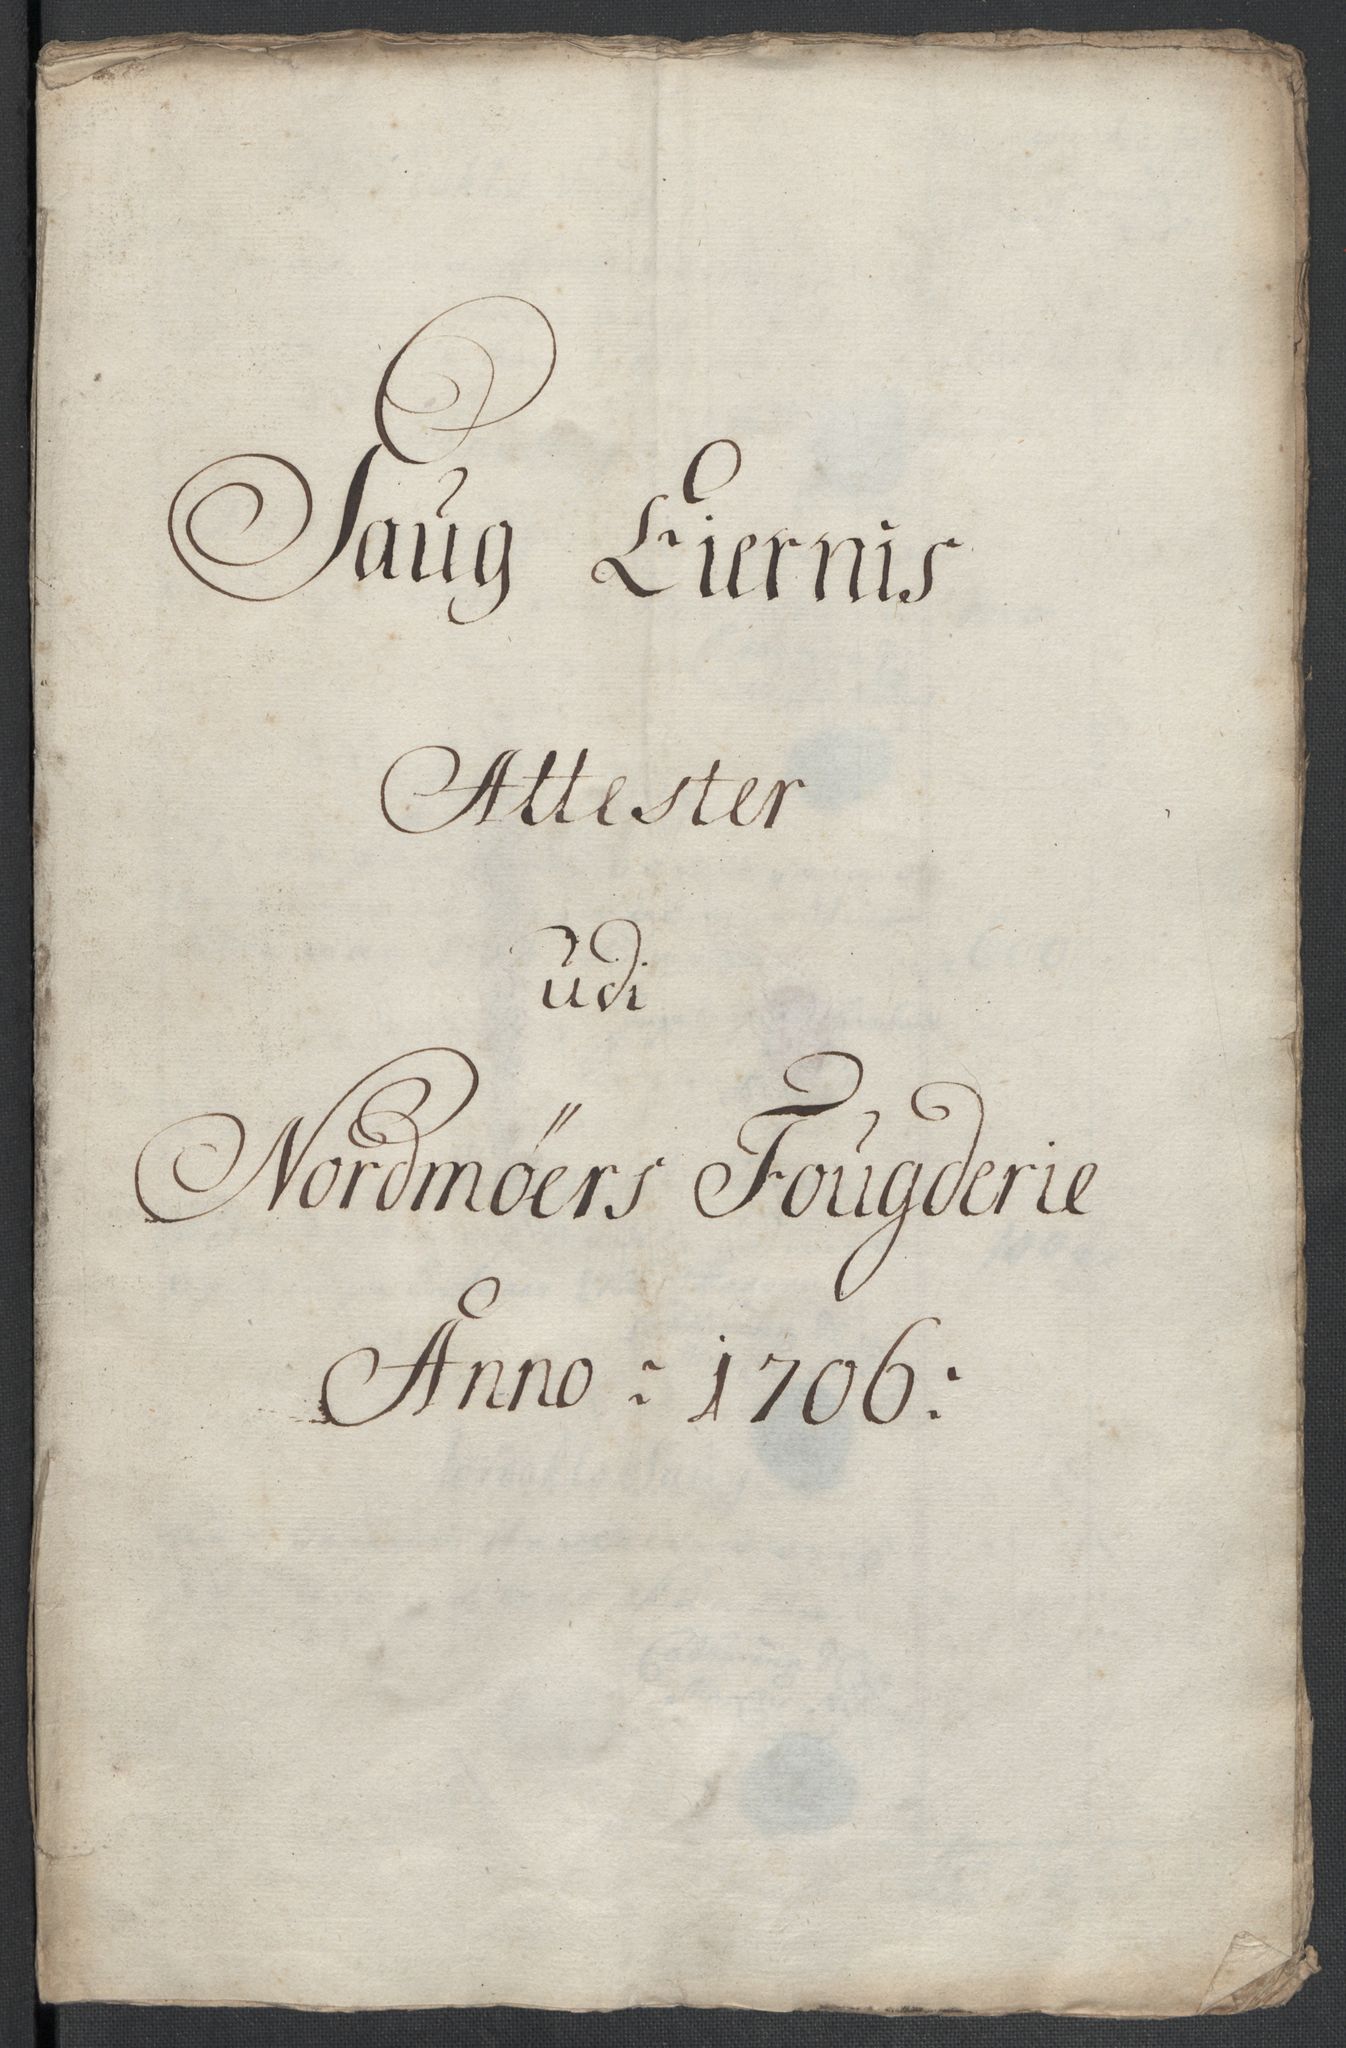 Saug Eiernis
Attester
udi
Nordmöers Fougderie
Anno: 1706: